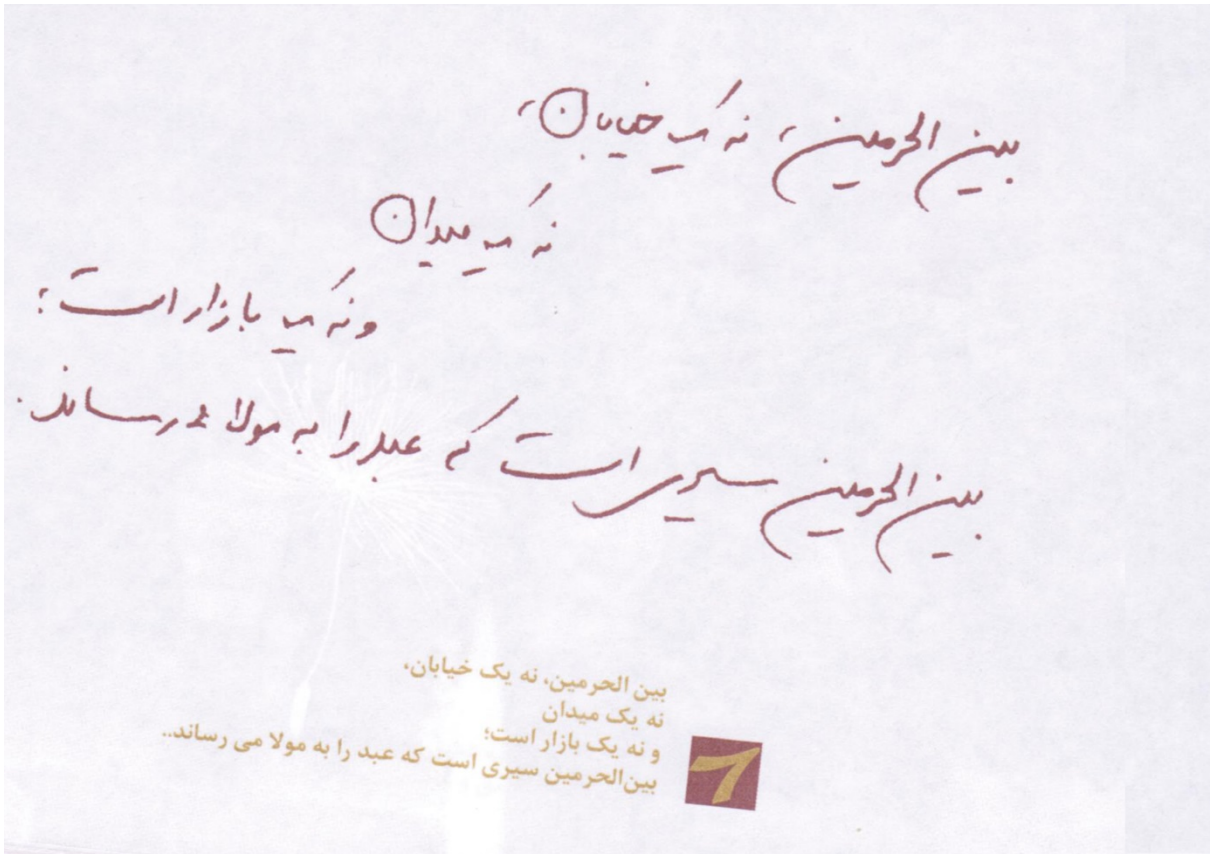 بین الحرمین، نه یک خیابان،
نه یک میدان
و نه یک بازار است؛
بین الحرمین سیری است که عبد را به مولا می رساند.
بین الحرمین، نه یک خیابان،
نه یک میدان
و نه یک بازار است؛
بین‌الحرمین سیری است که عبد را به مولا می رساند..